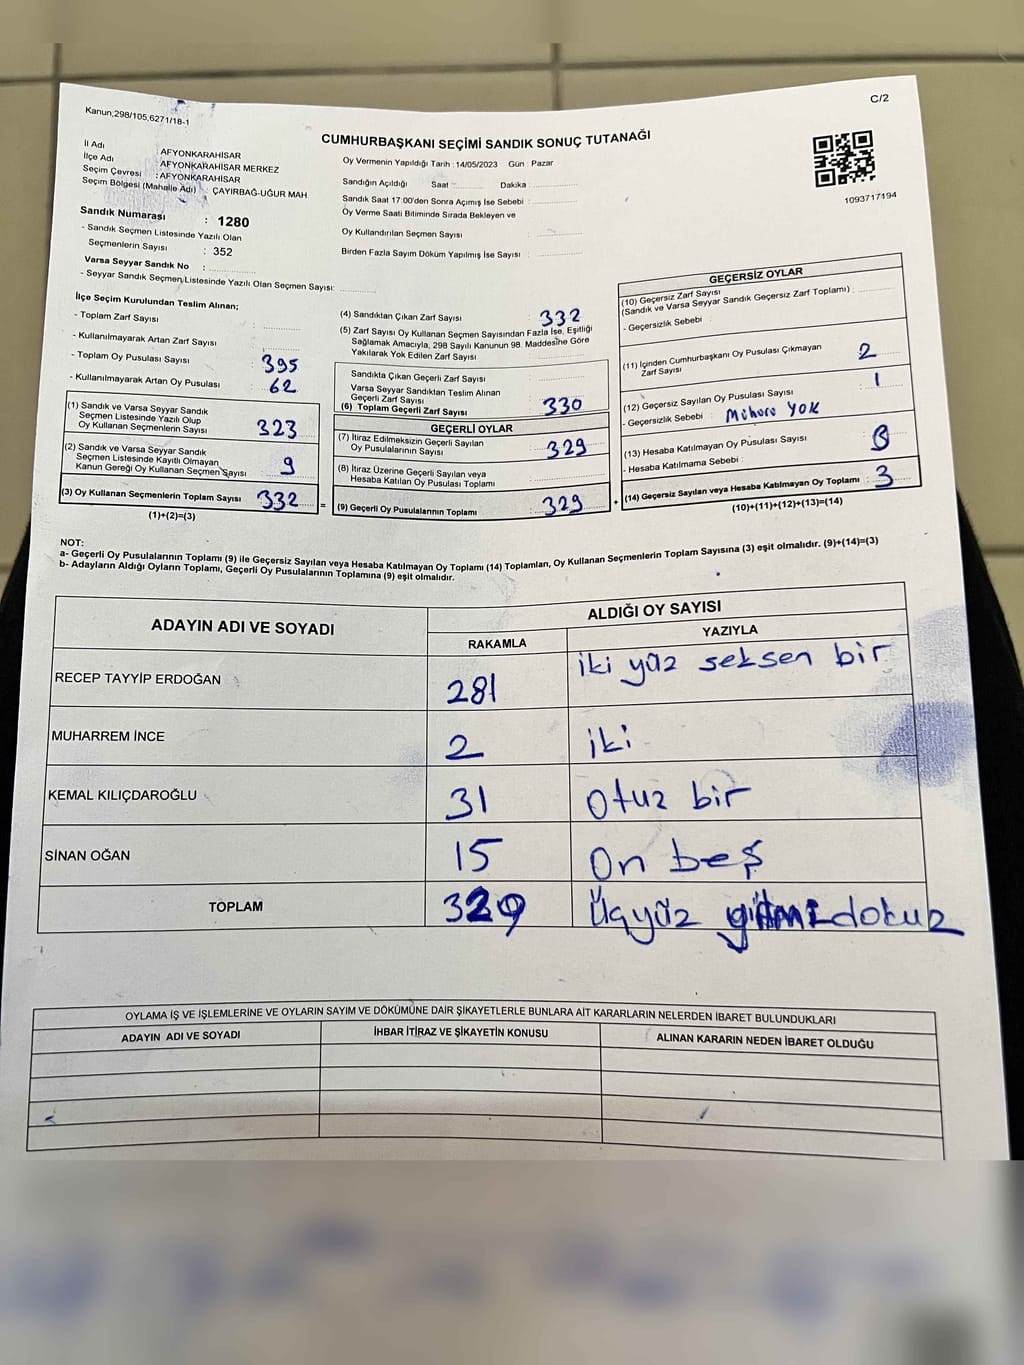 Kanun;298/105,6271/18-1
C/2
CUMHURBAŞKANI SEÇİMİ SANDIK SONUÇ TUTANAĞI
İl Adı : AFYONKARAHİSAR
İlçe Adı : AFYONKARAHİSAR MERKEZ
Seçim Çevresi : AFYONKARAHİSAR
Seçim Bölgesi (Mahalle Adı) : ÇAYIRBAĞ-UĞUR MAH.
Sandık Numarası : 1280
- Sandık Seçmen Listesinde Yazılı Olan
Seçmenlerin Sayısı : 352
Varsa Seyyar Sandık No :
- Seyyar Sandık Seçmen Listesinde Yazılı Olan Seçmen Sayısı:
Oy Vermenin Yapıldığı Tarih :14/05/2023 Gün : Pazar
Sandığın Açıldığı Saat Dakika
Sandık Saat 17.00'den Sonra Açımış İse Sebebi :
Oy Verme Saati Bitiminde Sırada Bekleyen ve
Oy Kullandırılan Seçmen Sayısı :
Birden Fazla Sayım Döküm Yapılmış İse Sayısı :
1093717194
İlçe Seçim Kurulundan Teslim Alınan;
- Toplam Zarf Sayısı :
- Kullanılmayarak Artan Zarf Sayısı :
- Toplam Oy Pusulası Sayısı : 395
- Kullanılmayarak Artan Oy Pusulası : 62
(1) Sandık ve Varsa Seyyar Sandık
Seçmen Listesinde Yazılı Olup
Oy Kullanan Seçmenlerin Sayısı : 323
(2) Sandık ve Varsa Seyyar Sandık
Seçmen Listesinde Kayıtlı Olmayan
Kanun Gereği Oy Kullanan Seçmen Sayısı : 9
(3) Oy Kullanan Seçmenlerin Toplam Sayısı : 332
(1)+(2)=(3)
=
(4) Sandıktan Çıkan Zarf Sayısı : 332
(5) Zarf Sayısı Oy Kullanan Seçmen Sayısından Fazla İse, Eşitliği
Sağlamak Amacıyla, 298 Sayılı Kanunun 98. Maddesine Göre
Yakılarak Yok Edilen Zarf Sayısı :
Sandıkta Çıkan Geçerli Zarf Sayısı :
Varsa Seyyar Sandıktan Teslim Alınan
Geçerli Zarf Sayısı :
(6) Toplam Geçerli Zarf Sayısı : 330
GEÇERLİ OYLAR
(7) İtiraz Edilmeksizin Geçerli Sayılan
Oy Pusulalarının Sayısı : 329
(8) İtiraz Üzerine Geçerli Sayılan veya
Hesaba Katılan Oy Pusulası Toplamı :
(9) Geçerli Oy Pusulalarının Toplamı : 329
+
GEÇERSİZ OYLAR
(10) Geçersiz Zarf Sayısı
(Sandık ve Varsa Seyyar Sandık Geçersiz Zarf Toplamı) :
- Geçersizlik Sebebi :
(11) İçinden Cumhurbaşkanı Oy Pusulası Çıkmayan
Zarf Sayısı : 2
(12) Geçersiz Sayılan Oy Pusulası Sayısı : 1
- Geçersizlik Sebebi : Mühürü YOK
(13) Hesaba Katılmayan Oy Pusulası Sayısı :
- Hesaba Katılmama Sebebi :
(14) Geçersiz Sayılan veya Hesaba Katılmayan Oy Toplamı : 3
(10)+(11)+(12)+(13)=(14)
NOT:
a- Geçerli Oy Pusulalarının Toplamı (9) ile Geçersiz Sayılan veya Hesaba Katılmayan Oy Toplamı (14) Toplamları, Oy Kullanan Seçmenlerin Toplam Sayısına (3) eşit olmalıdır. (9)+(14)=(3)
b- Adayların Aldığı Oyların Toplamı, Geçerli Oy Pusulalarının Toplamına (9) eşit olmalıdır.
ADAYIN ADI VE SOYADI ALDIĞI OY SAYISI
RAKAMLA YAZIYLA
RECEP TAYYİP ERDOĞAN 281 iki yüz seksen bir
MUHARREM İNCE 2 iki
KEMAL KILIÇDAROĞLU 31 Otuz bir
SİNAN OĞAN 15 On beş
TOPLAM 329 Üçyüz yirmi dokuz
OYLAMA İŞ VE İŞLEMLERİNE VE OYLARIN SAYIM VE DÖKÜMÜNE DAİR ŞİKAYETLERLE BUNLARA AİT KARARLARIN NELERDEN İBARET BULUNDUKLARI
ADAYIN ADI VE SOYADI İHBAR İTİRAZ VE ŞİKAYETİN KONUSU ALINAN KARARIN NEDEN İBARET OLDUĞU